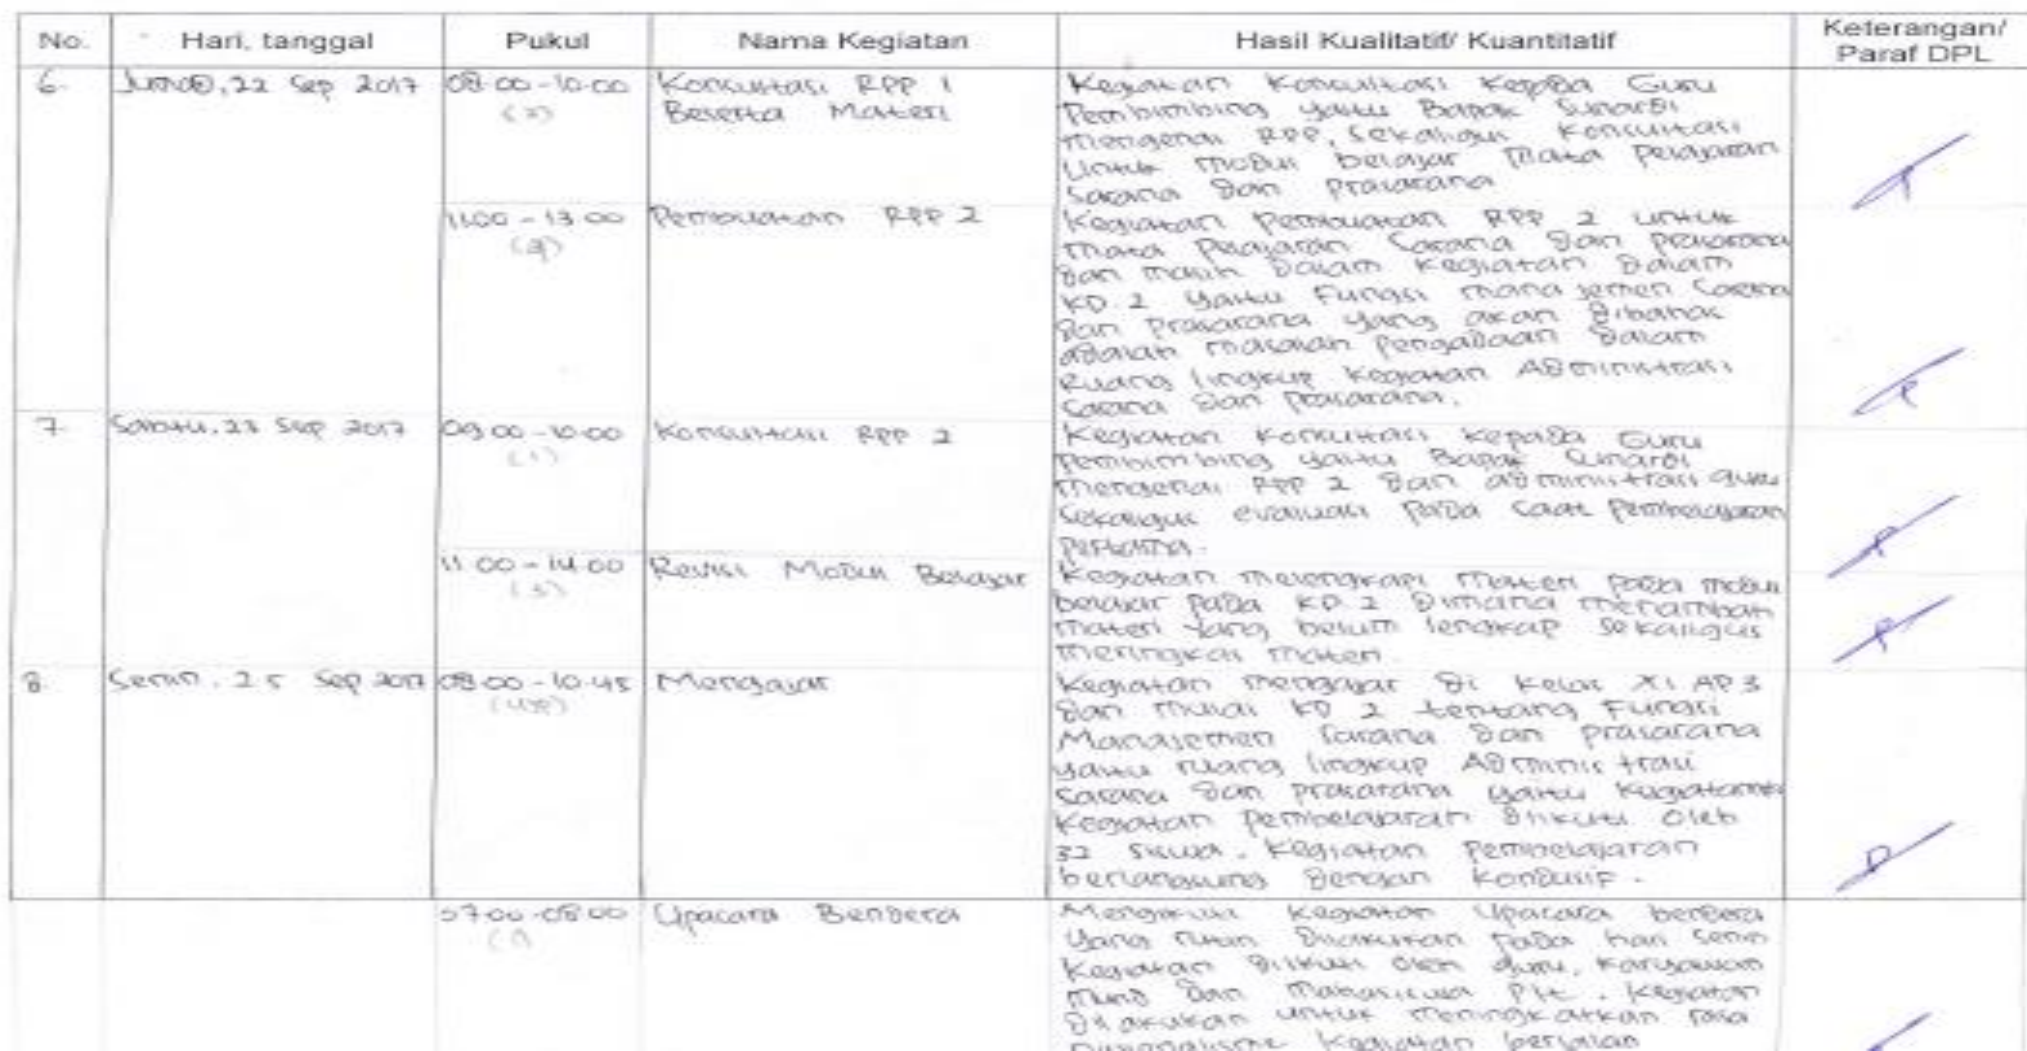 No. Hari, tanggal Pukul Nama Kegiatan Hasil Kualitatif/ Kuantitatif Keterangan/ Paraf DPL
6. Jumat, 22 Sep 2017 08.00 - 10.00 Konsultasi RPP 1 Kegiatan Konsultasi Kepada Guru
(2) Beserta Materi Pembimbing yaitu Bapak Sunardi
mengenai RPP, sekaligus Konsultasi
Untuk modul belajar mata pelajaran
Sarana dan prasarana
11.00 - 13.00 Pembuatan RPP 2 Kegiatan Pembuatan RPP 2 untuk
mata pelajaran Sarana dan prasarana
dan masih dalam kegiatan dalam
KD.2 yaitu Fungsi manajemen Sarana
dan prasarana yang akan dibahas
adalah masalah pengadaan dalam
Ruang lingkup kegiatan Administrasi
Sarana dan prasarana.
7. Sabtu, 23 Sep 2017 09.00 - 10.00 Konsultasi RPP 2 Kegiatan Konsultasi Kepada Guru
(1) Pembimbing yaitu Bapak Sunardi
mengenai RPP 2 dan administrasi guru
sekaligus evaluasi pada saat pembelajaran
pertama.
11.00 - 14.00 Revisi Modul Belajar Kegiatan melengkapi materi pada modul
(3) belajar pada KD.2 dimana menambah
materi yang belum lengkap sekaligus
meringkas materi.
8. Senin, 25 Sep 2017 08.00 - 10.45 Mengajar Kegiatan mengajar di kelas XI AP 3
dan mulai KD 2 tentang Fungsi
Manajemen Sarana dan prasarana
yaitu ruang lingkup Administrasi
Sarana dan prasarana yaitu
Kegiatan pembelajaran diikuti oleh
32 siswa. Kegiatan pembelajaran
berlangsung dengan kondusif.
07.00 - 08.00 Upacara Bendera Mengikuti kegiatan Upacara bendera
yang rutin dilakukan pada hari Senin
Kegiatan diikuti oleh guru, karyawan
murid dan mahasiswa PLT. Kegiatan
dilakukan untuk meningkatkan rasa
nasionalisme Kegiatan berjalan